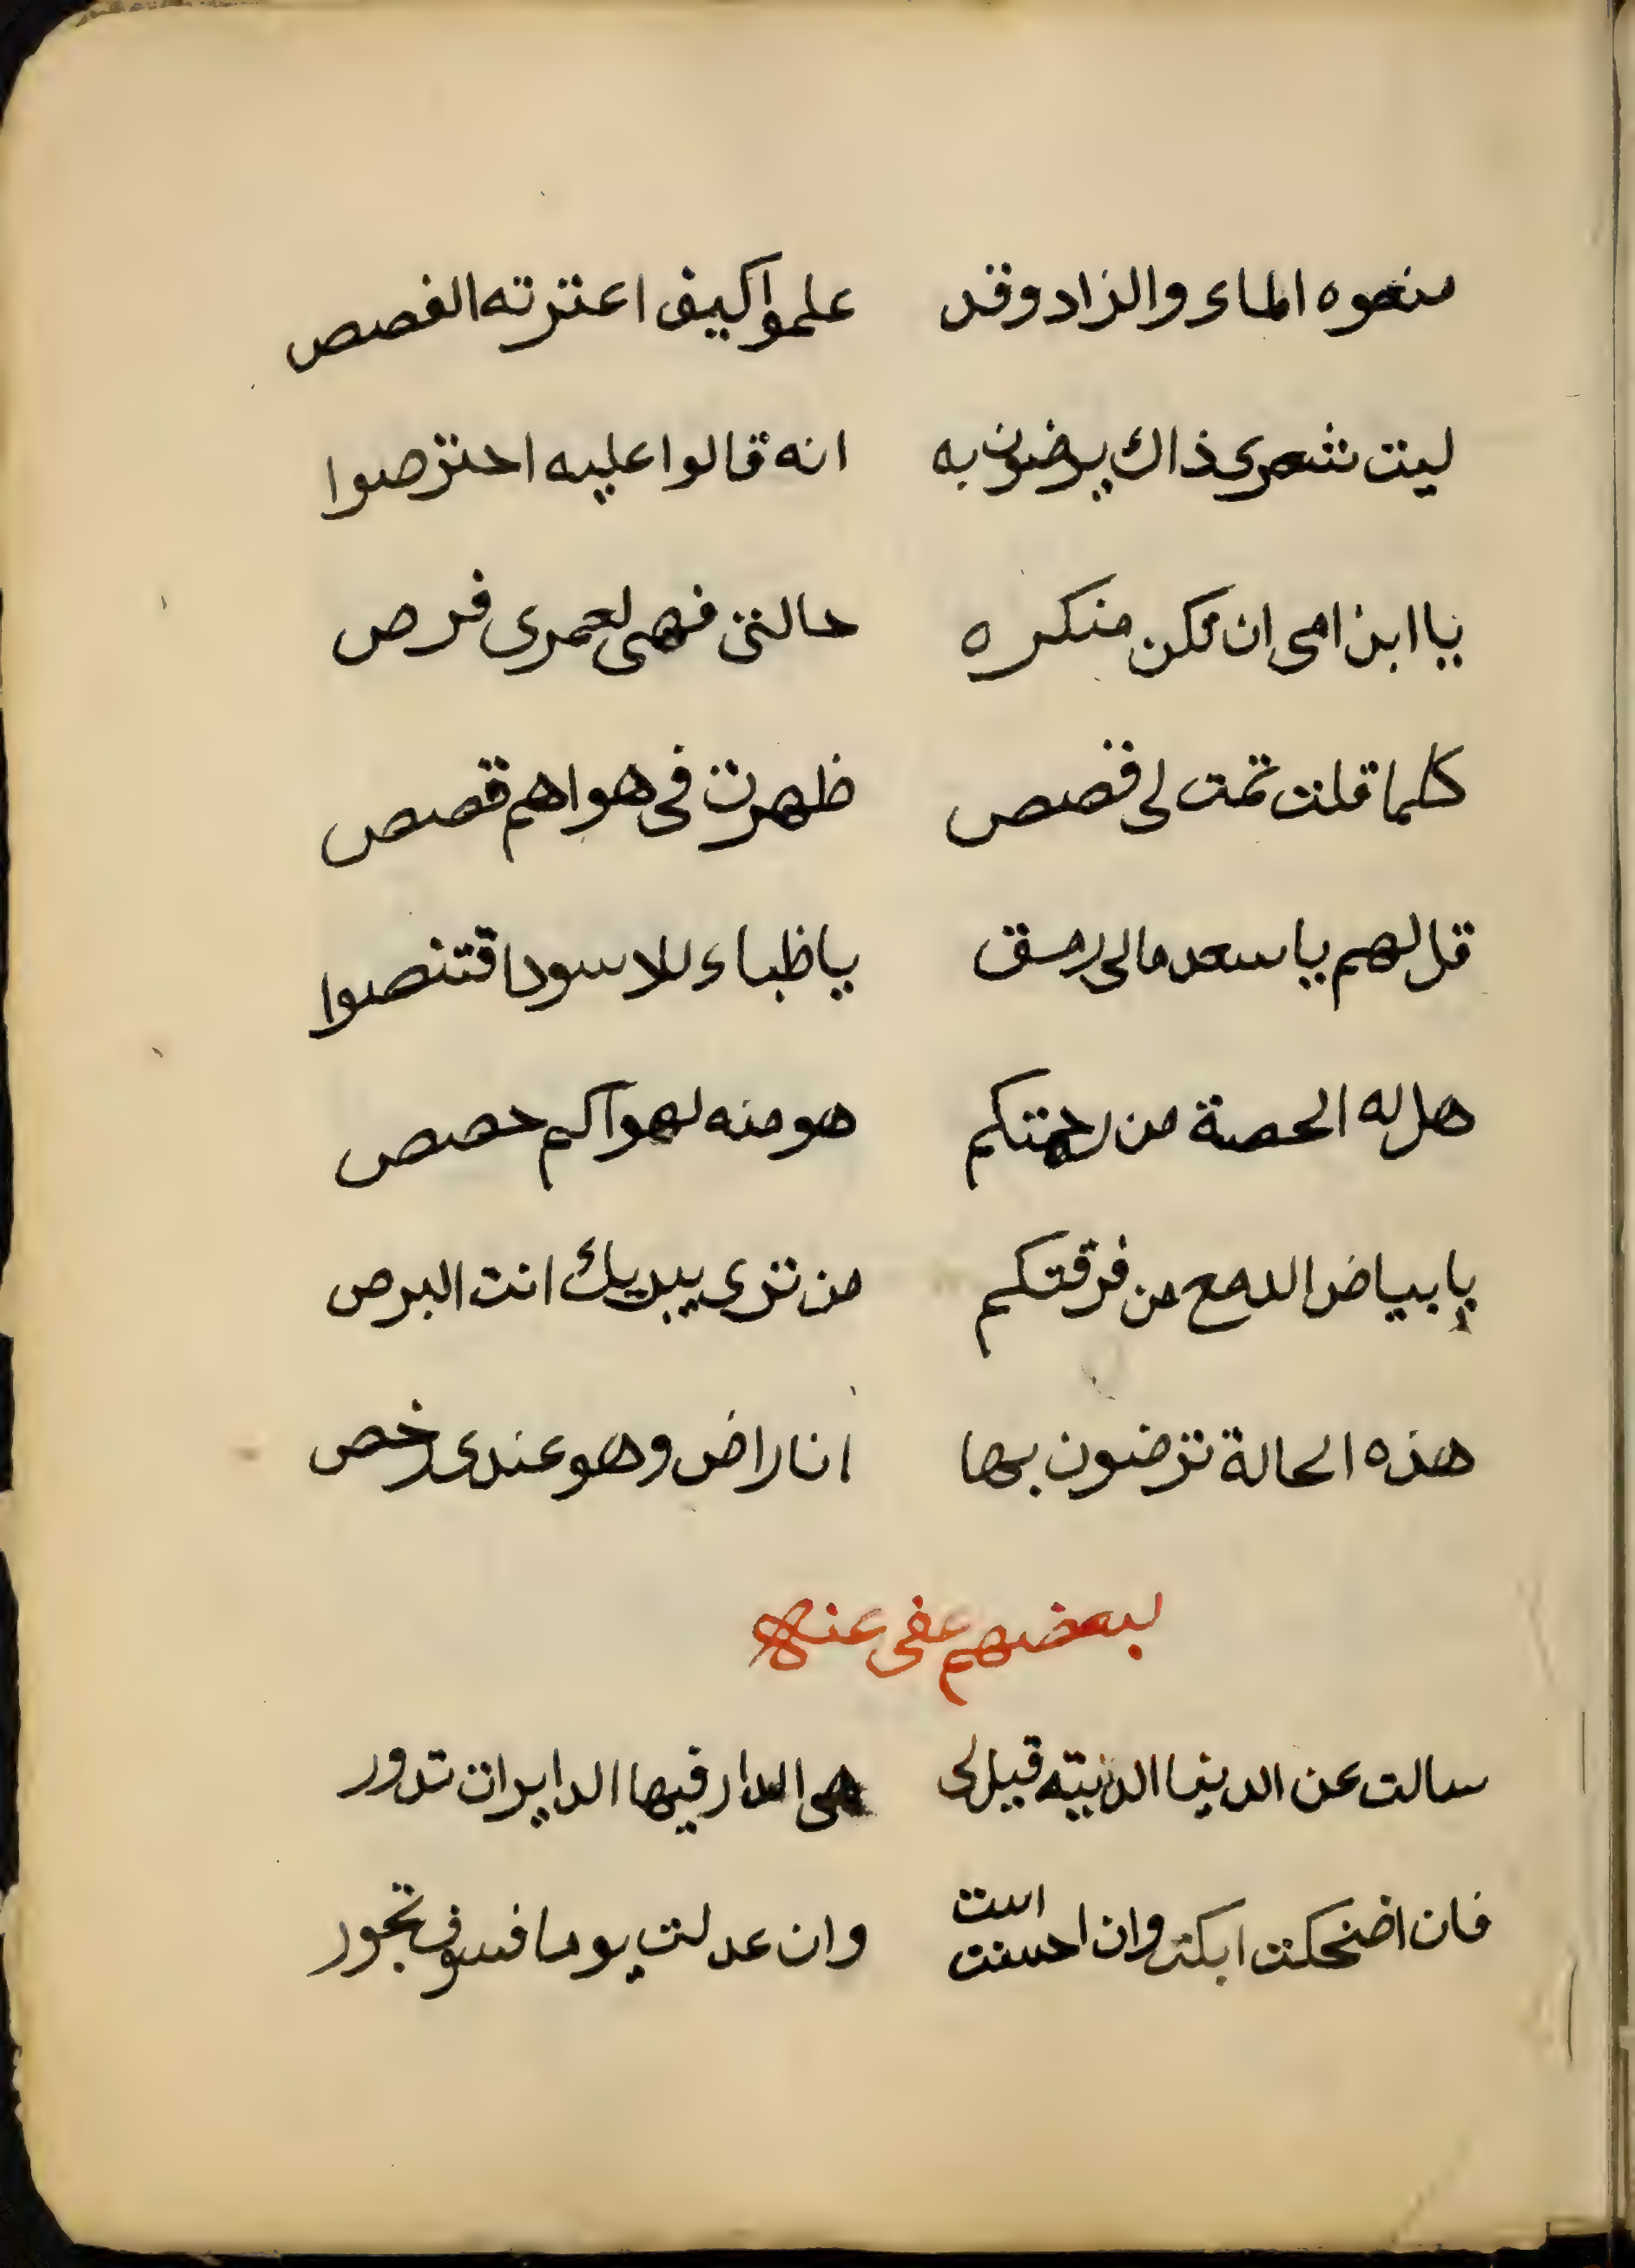 منعوه الماء والزاد وقد علموا كيف اعترته الغصص
ليت شعري ذاك يرضون به انه قالوا عليه احترصوا
يا ابن امي ان تكن منكره حالتي فهي لعمري فرص
كلما قلت تمت لي قصص ظهرت في هواهم قصص
قل لهم يا سعد مالي رمق يا ظباء للاسود اقتنصوا
هل له الحصة من رحمتكم هو منه لهواكم حصص
يا بياض الدمع من فرقتكم من ترى يبديك انت البرص
هذه الحالة ترضون بها انا راض وهو عندي رخص
لبعضهم عفى عنه
سالت عن الدنيا الدنيته قيل لي هي الدار فيها الدايرات تدور
فان اضحكت ابكت وان احسنت است وان عدلت يوما فسوف تجور